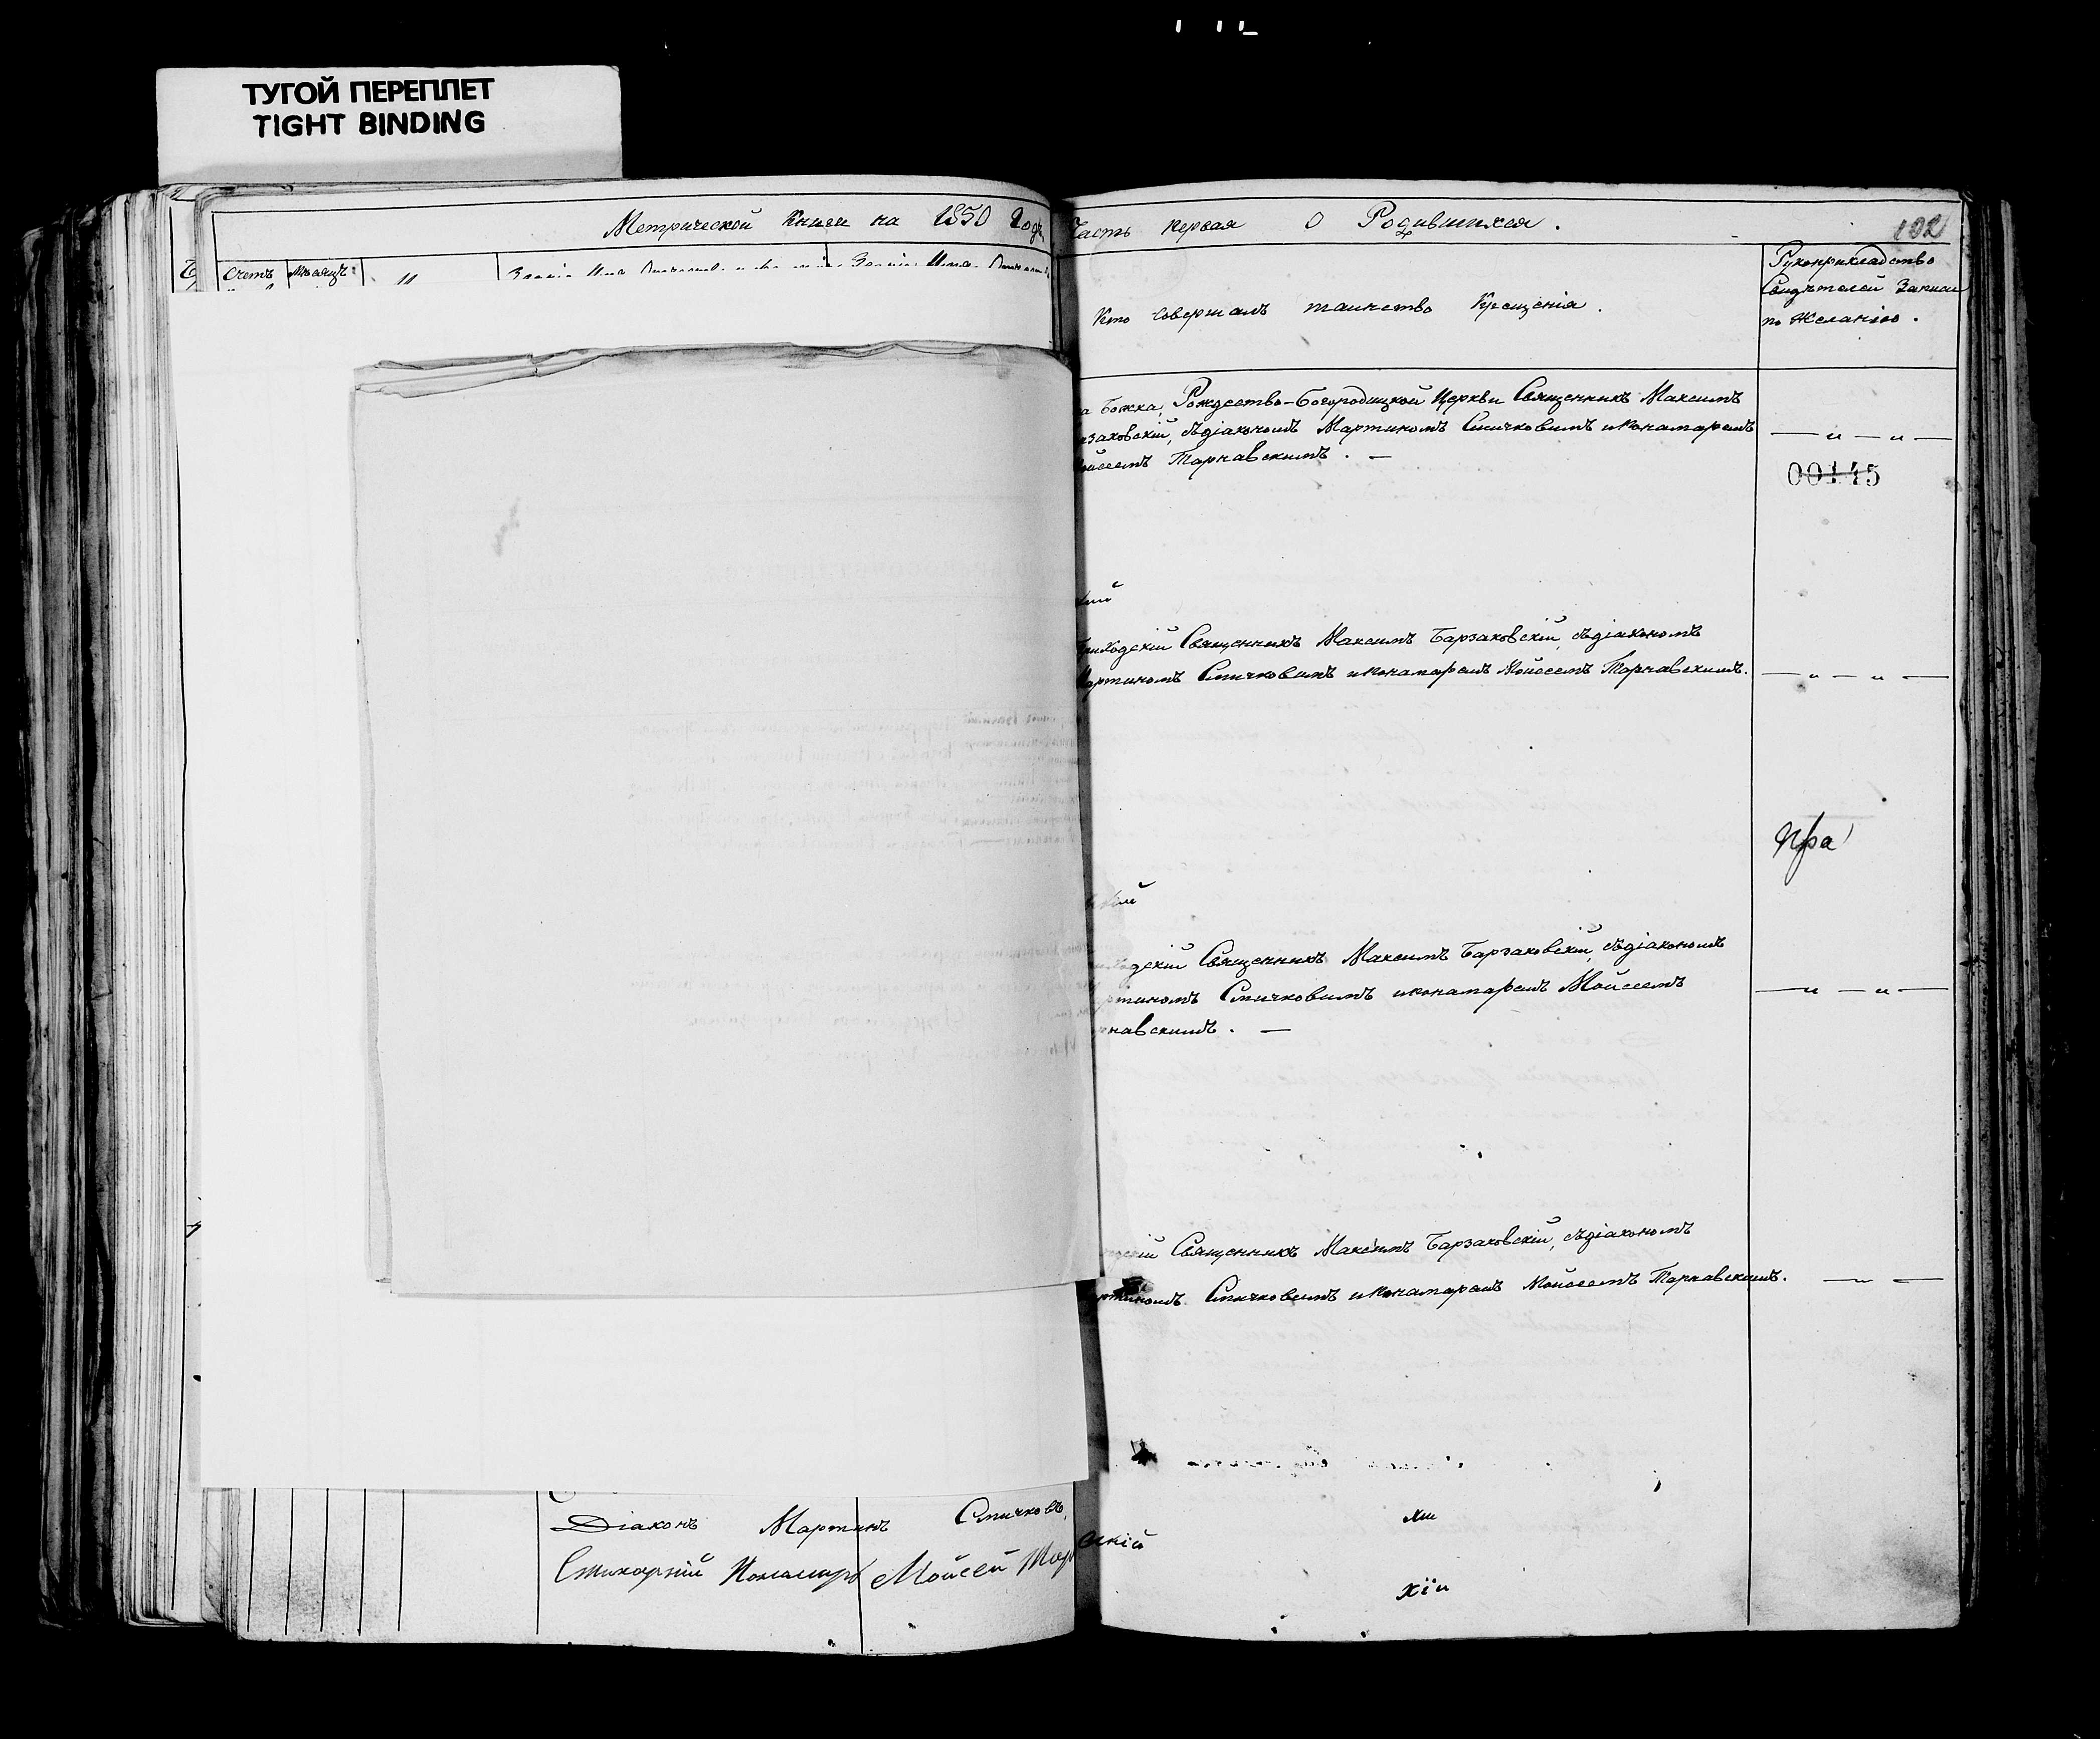 ТУГОЙ ПЕРЕПЛЕТ
TIGHT BINDING
Метрической Книги на 1850 Годъ,
Часть первая О Родившихся.
102
Счетъ
Мѣсяцъ
Кто совершалъ таинство Крещенія.
Рукоприкладство
Свидѣтелей Записи
по Желанію.
Божка, Рождество-Богородицкой Церкви Священникъ Максимъ
заковскій, съ діакономъ Мартиномъ Смичковимъ и понамаремъ
Тарнавскимъ. —
00145
Приходскій Священникъ Максимъ Барзаковскій, съ діакономъ
Мартиномъ Смичковимъ и понамаремъ Мойсеемъ Тарнавскимъ.
дскій Священникъ Максимъ Барзаковскій, съ діакономъ
ртиномъ Смичковимъ и понамаремъ Мойсеемъ
рнавскимъ. —
скій Священникъ Максимъ Барзаковскій, съ діакономъ
ртиномъ Смичковимъ и понамаремъ Мойсеемъ Тарнавскимъ.
Діаконъ Мартинъ Смичковъ,
Стихарній Понамарь Мойсей Тар
скій
хіи